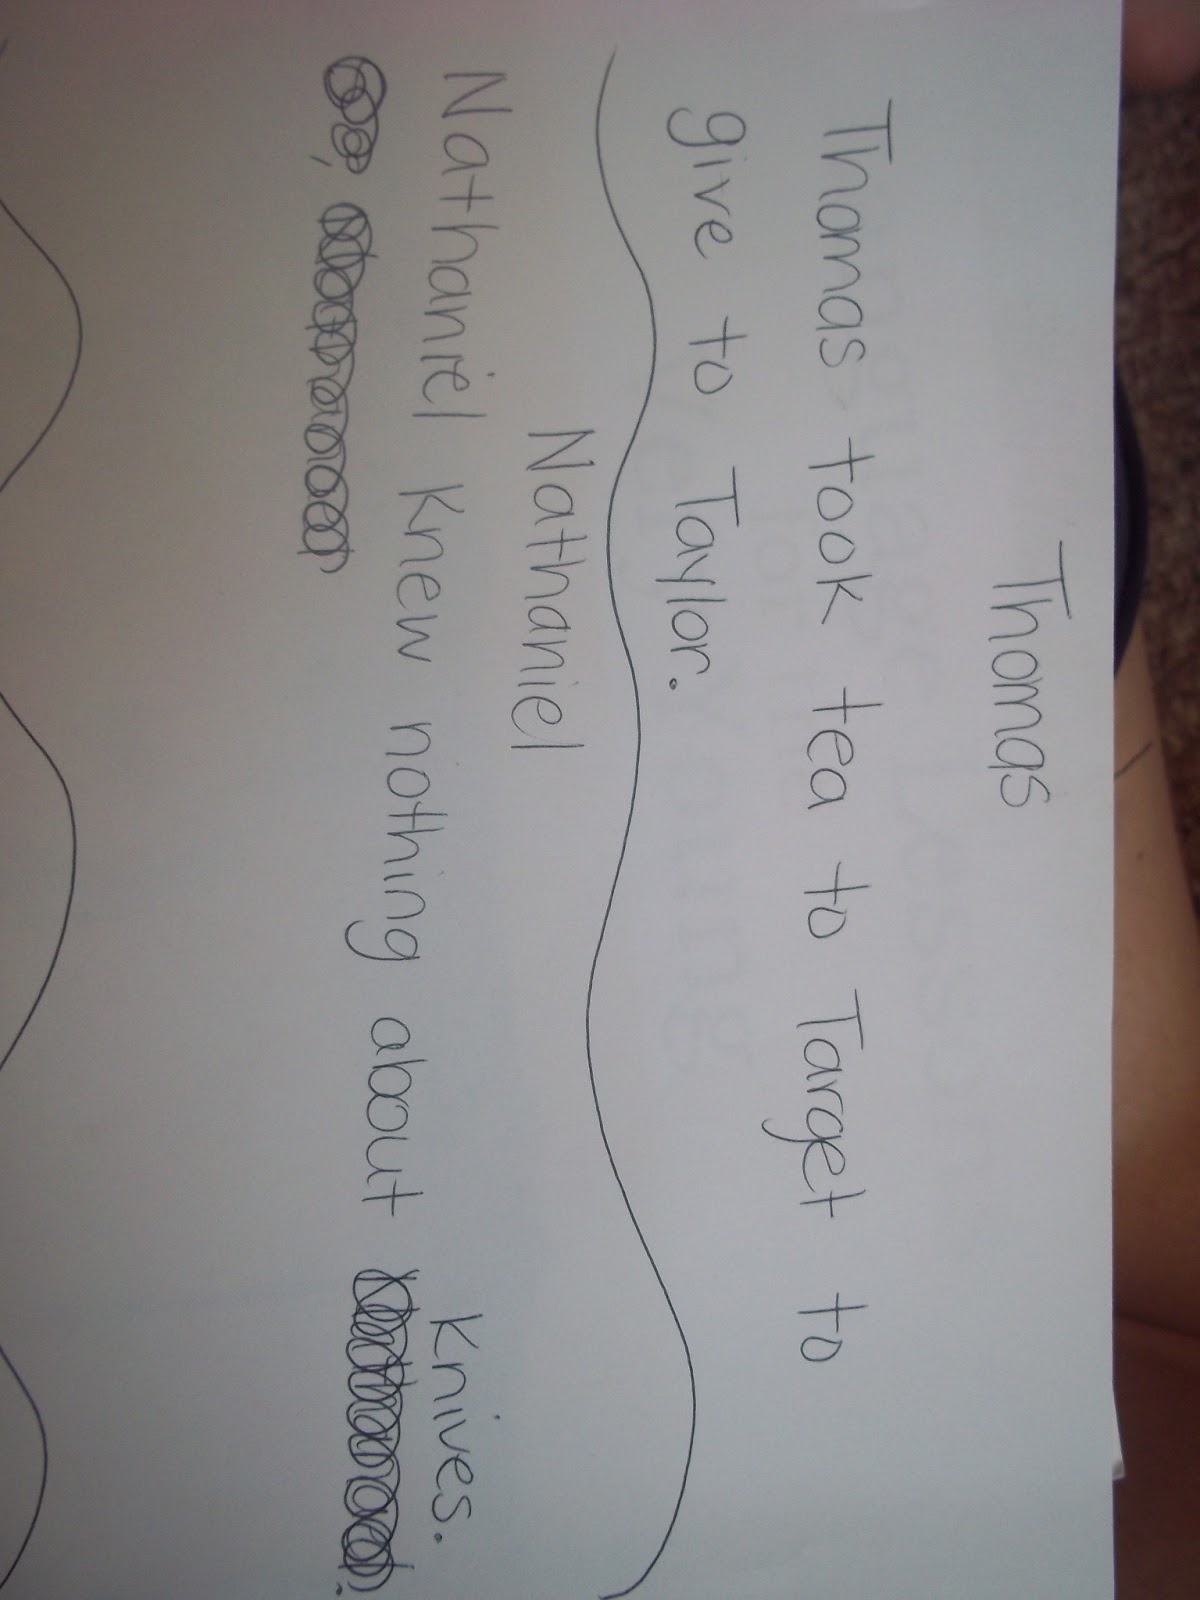 Thomas
Thomas took tea to Target to
give to Taylor.
Nathaniel
Nathaniel Knew nothing about Knives.